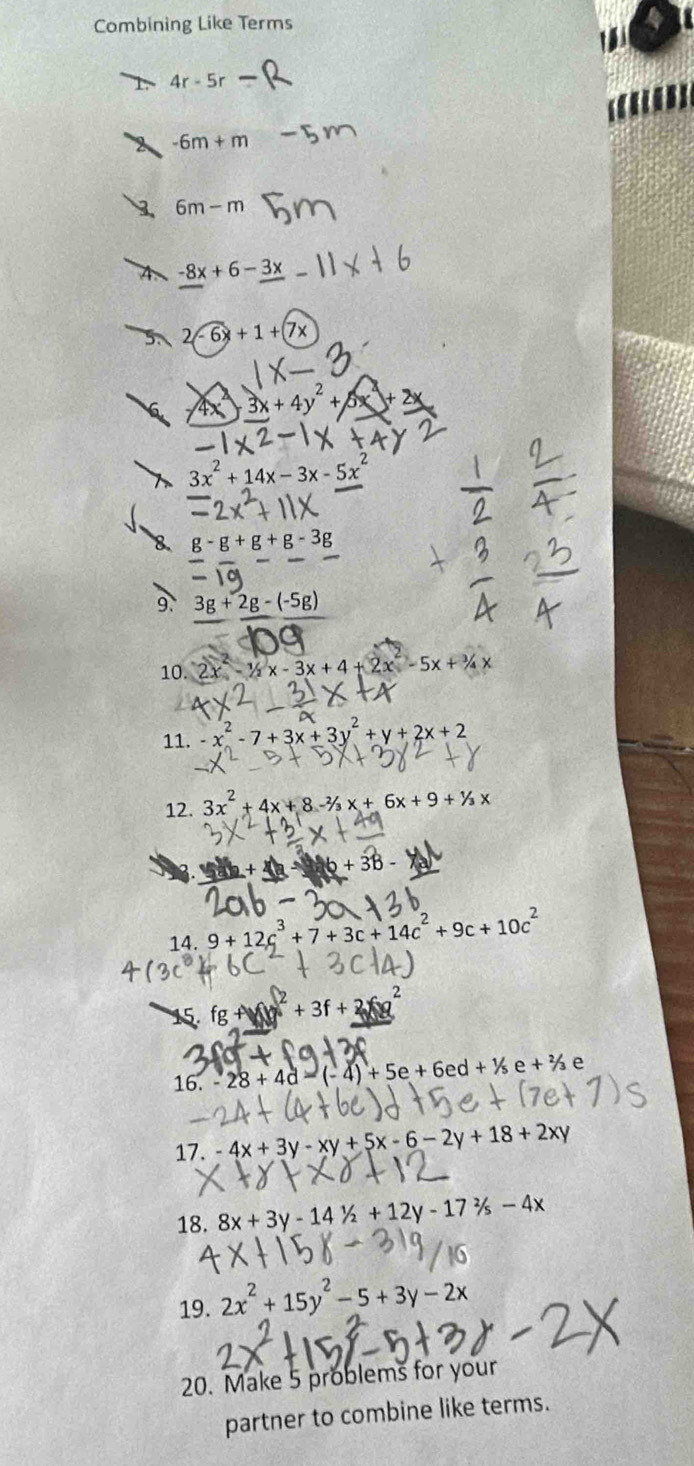 Combining Like Terms
1. 4r - 5r - R
2. -6m + m -5m
3. 6m - m 5m
4. -8x + 6 - 3x -11x + 6
5. 2 - 6x + 1 + 7x
1x - 3
6. - 4x² - 3x + 4y² + 3x² + 2x
-1x2 - 1x + 4y2
7. 3x² + 14x - 3x - 5x²
-2x² + 11x
1/2 2/4
8. g - g + g + g - 3g
-1g
+ 3/4 3/4
9. 3g + 2g - (-5g)
10g
10. 2x² - ½ x - 3x + 4 + 2x² - 5x + ¾ x
4x2 - 31/4 x + 4
11. - x² - 7 + 3x + 3y² + y + 2x + 2
-x2 - 5 + 5x + 3y2 + y
12. 3x² + 4x + 8 -⅔ x + 6x + 9 + ⅓ x
3x2 + x +
+ 3b -
2ab - 3a + 3b
14. 9 + 12c³ + 7 + 3c + 14c² + 9c + 10c²
4(3c³ + 6c2 + 3c + 4)
15. fg + + 3f + 2fg²
3fg2 + fg + 3f
16. - 28 + 4d - (- 4) + 5e + 6ed + ⅕ e + ⅔ e
-24 + (4 + 6e)d + 5e + (7e + 7)5
17. - 4x + 3y - xy + 5x - 6 - 2y + 18 + 2xy
x + y + xy + 12
18. 8x + 3y - 14 ½ + 12y - 17 ⅖ - 4x
4x + 15y - 319/10
19. 2x² + 15y² - 5 + 3y - 2x
2x² + 15y² - 5 + 3y - 2x
20. Make 5 problems for your
partner to combine like terms.